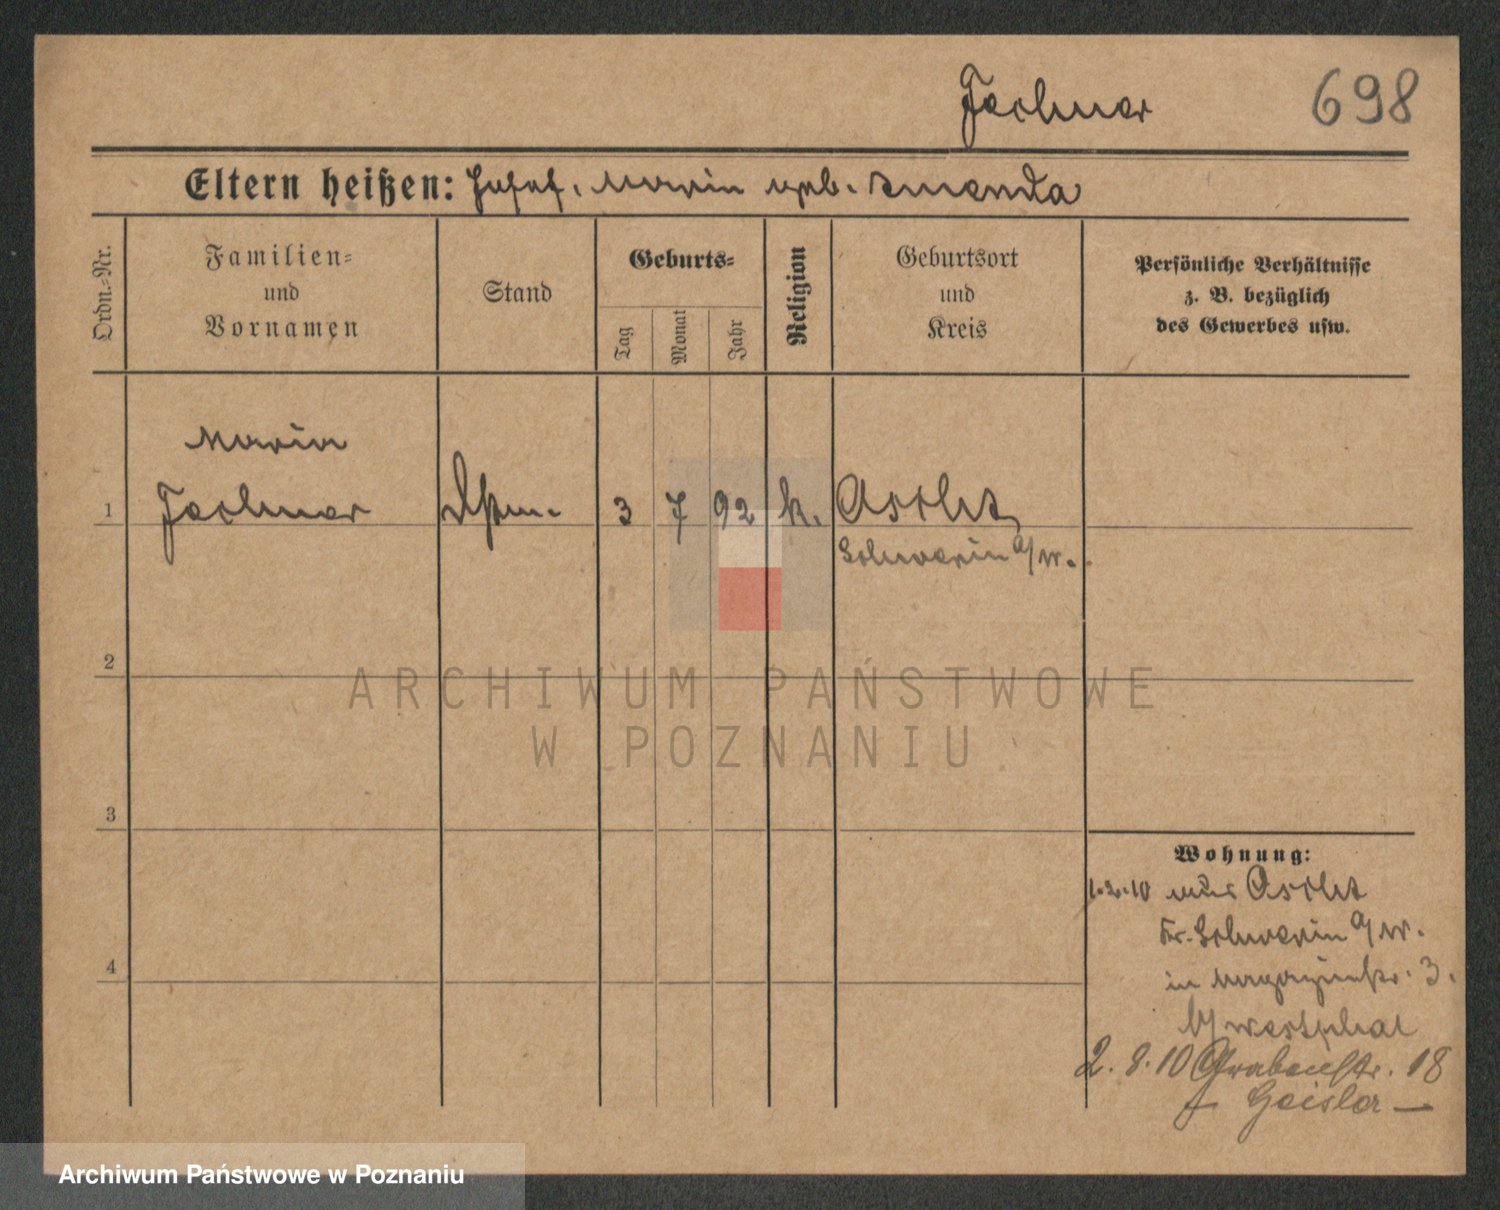 Fechner 698
Eltern heißen: Josef, Maria geb. Smenda
Ordn.-Nr.
Familien-
und
Vornamen
Stand
Geburts-
Tag
Monat
Jahr
Religion
Geburtsort
und
Kreis
Persönliche Verhältnisse
z. B. bezüglich
des Gewerbes usw.
Maria
1 Fechner 3 7 92 k.
Schwerin a/W.
2
3
4
Wohnung:
1.2.10 aus
Kr. Schwerin a/W.
in Magazinstr. 3.
b/ Westphal
2. 8. 10 Grabenstr. 18
Geisler —
ARCHIWUM PAŃSTWOWE
W POZNANIU
Archiwum Państwowe w Poznaniu